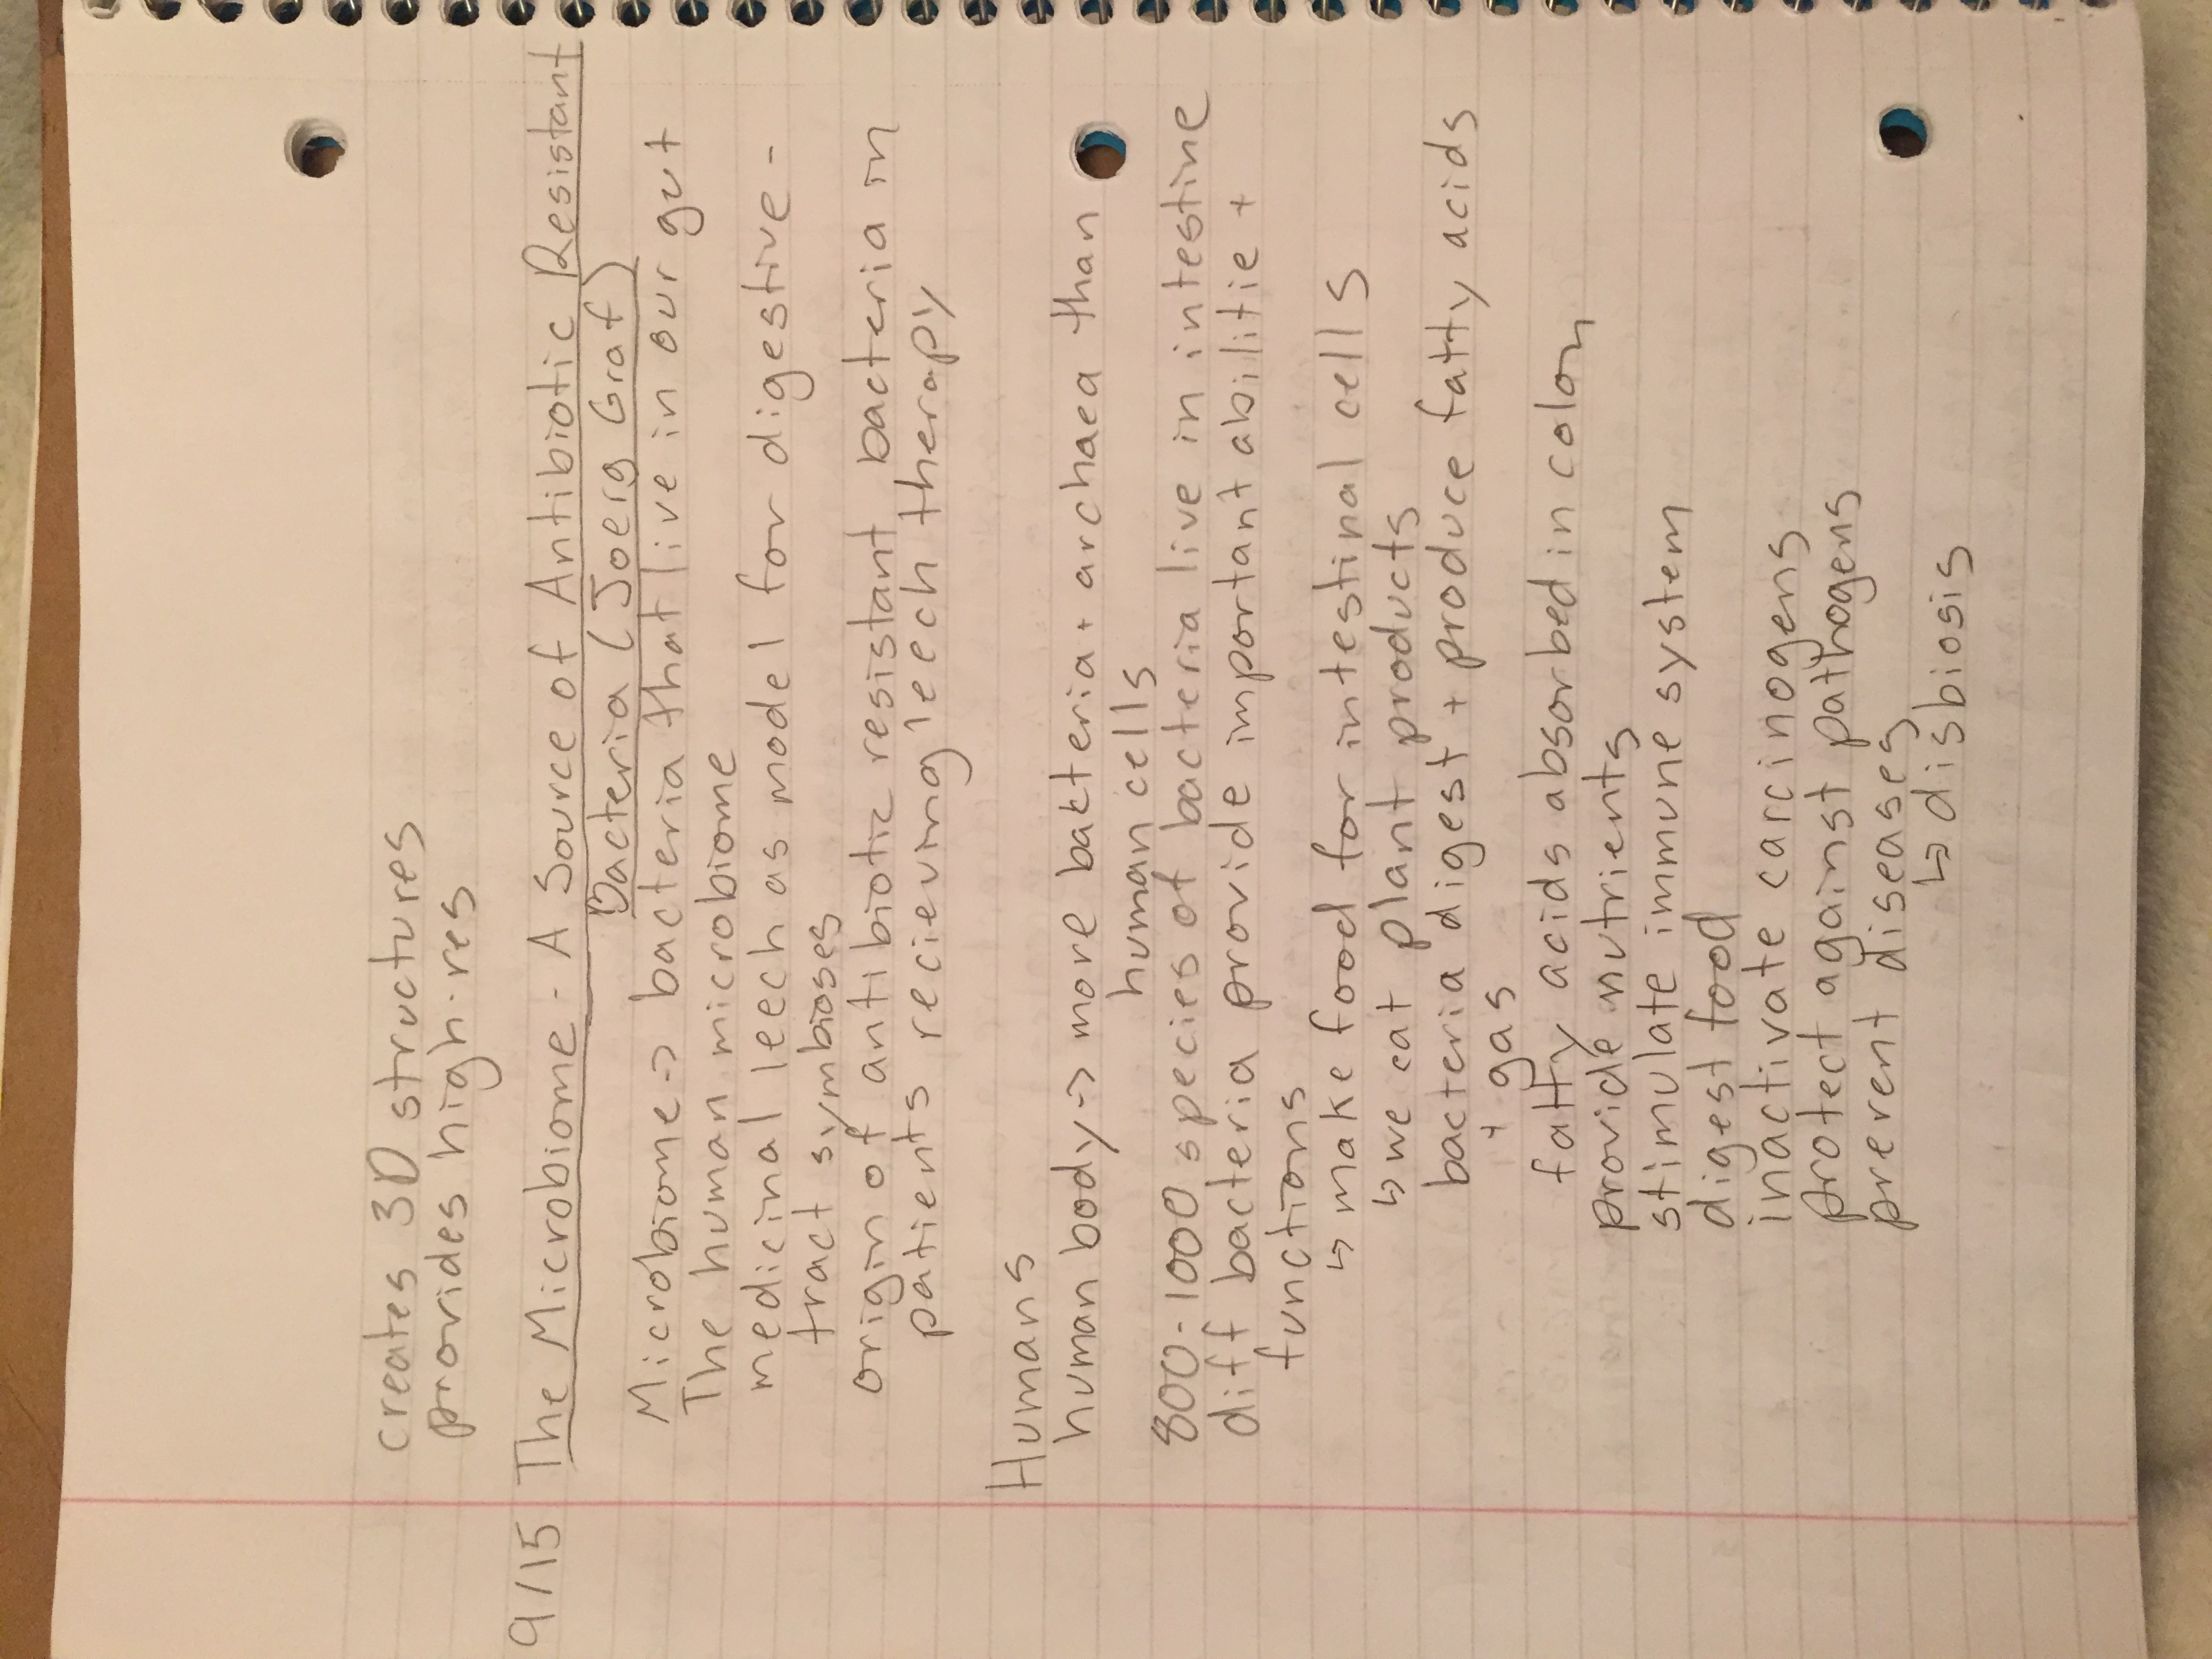 creates 3D structures
provides high-res
9/15 The Microbiome - A Source of Antibiotic Resistant
Bacteria (Joerg Graf)
Microbiome -> bacteria that live in our gut
The human microbiome
medicinal leech as model for digestive-
tract symbioses
origin of antibiotic resistant bacteria in
patients recieving leech therapy
Humans
human body -> more bakteria + archaea than
human cells
800-1000 species of bacteria live in intestine
diff bacteria provide important abilitie +
functions
↳ make food for intestinal cells
↳ we eat plant products
bacteria digest + produce fatty acids
+ gas
fatty acids absorbed in colon
provide nutrients
stimulate immune system
digest food
inactivate carcinogens
protect against pathogens
prevent diseases
↳ disbiosis